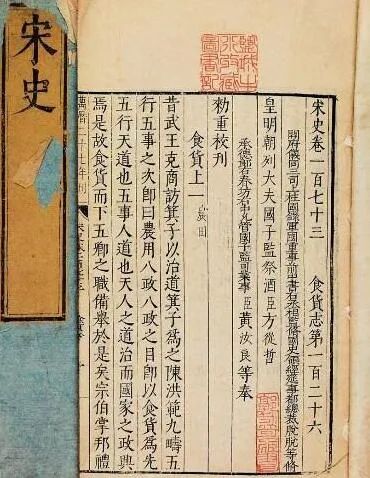 宋史卷一百七十三 食貨志第一百二十六
開府儀同三司上柱國錄軍國重事前中書右丞相監修國史領經筵事都總裁脫脫等修
皇明朝列大夫國子監祭酒臣方從哲
承德郎右春坊右中允管國子監司業事臣黃汝良等奉
勑重校刊
食貨上一 農田
昔武王克商訪箕子以治道箕子爲之陳洪範九疇五
行五事之次即曰農用八政八政之目即以食貨爲先
五行天道也五事人道也天人之道治而國家之政興
焉是故食貨而下五卿之職備舉於是矣宗伯掌邦禮
萬曆二十七年刊
宋史